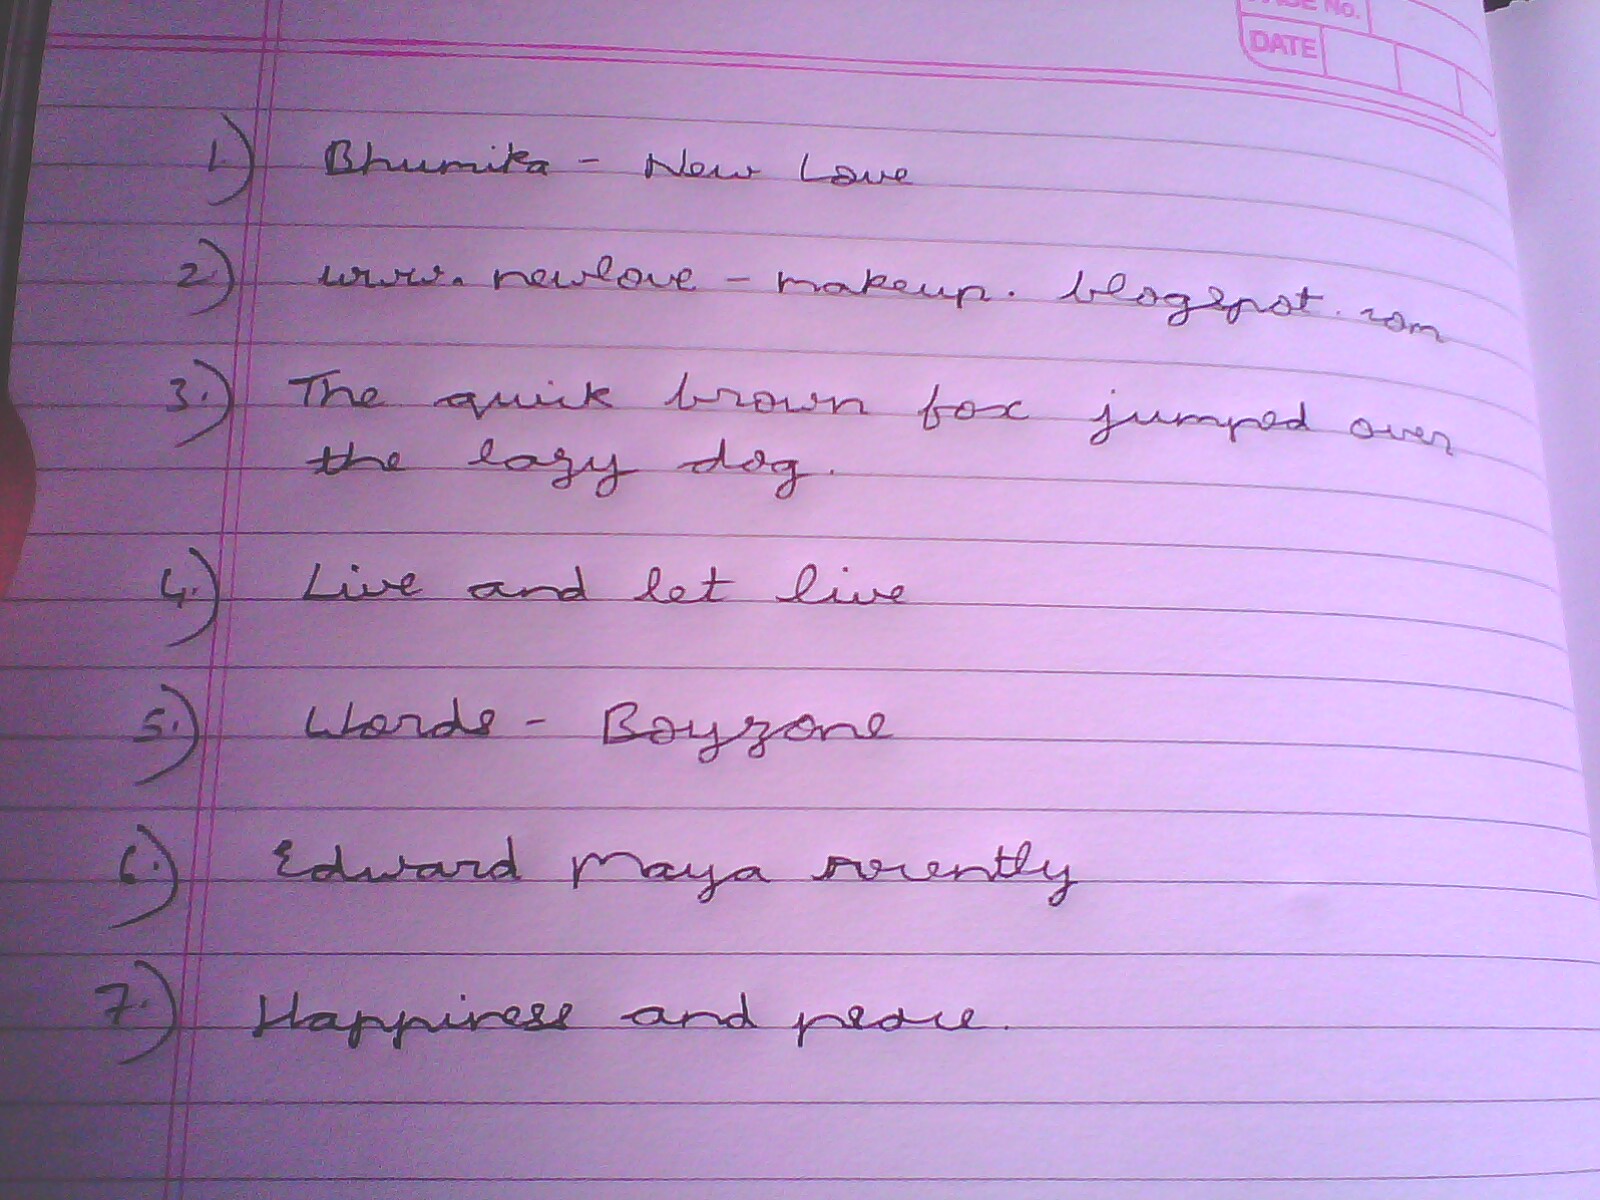 PAGE No.
DATE
1.) Bhumika - New Love
2.) www.newlove-makeup.blogspot.com
3.) The quick brown fox jumped over
the lazy dog.
4.) Live and let live
5.) Words - Boyzone
6.) Edward Maya recently
7.) Happiness and peace.